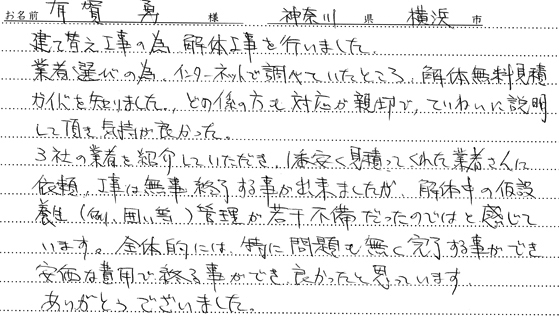 お名前 有賀 勇 様 神奈川 県 横浜 市
建て替え工事の為、解体工事を行いました。
業者選びの為、インターネットで調べていたところ、解体無料見積
ガイドを知りました。どの係の方も対応が親切で、ていねいに説明
して頂き気持が良かった。
3社の業者を紹介していただき、1番安く見積ってくれた業者さんに
依頼、工事は無事終了する事が出来ましたが、解体中の仮設
養生(例、囲い等)管理が若干不備だったのではと感じて
います。全体的には、特に問題も無く完了する事ができ
安価な費用で終る事ができ、良かったと思っています。
ありがとうございました。